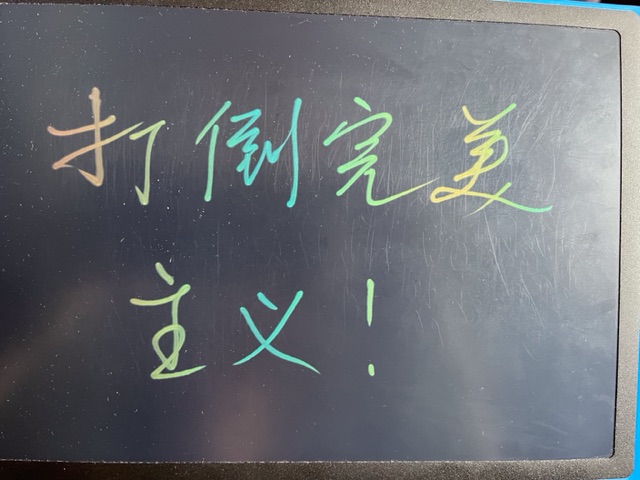 打倒完美
主义！